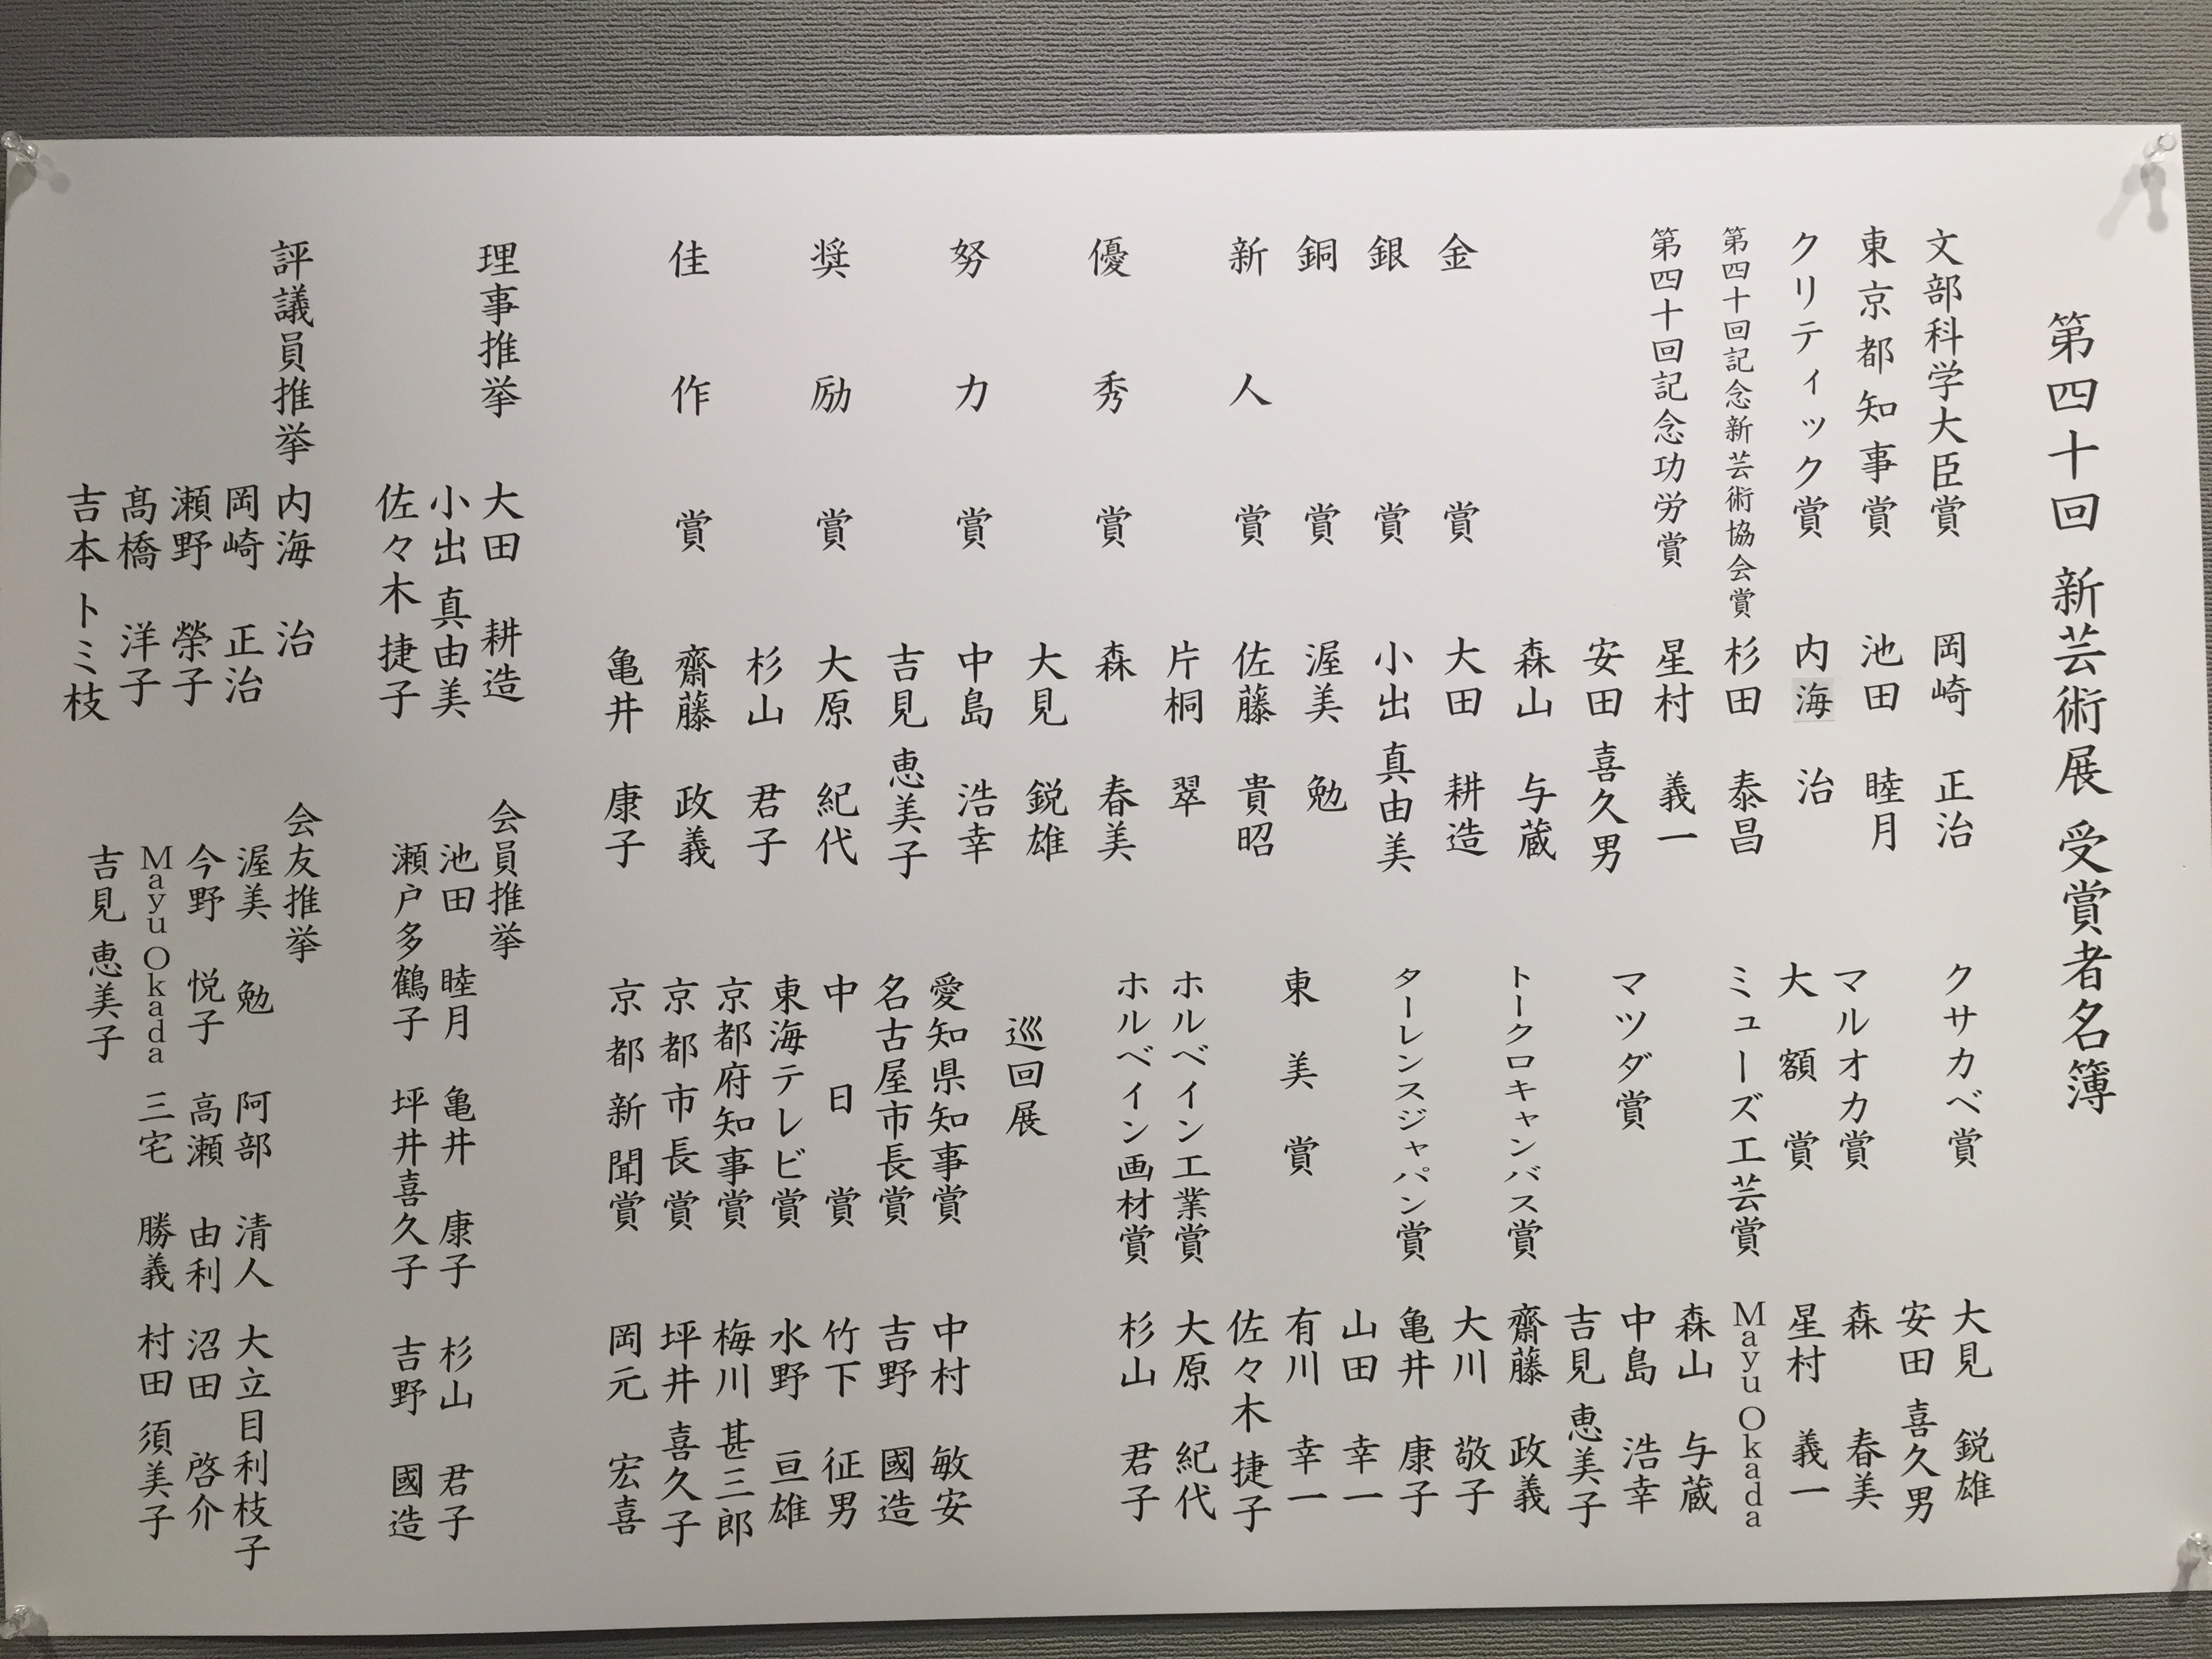 第四十回 新芸術展 受賞者名簿
文部科学大臣賞 岡崎 正治
東京都知事賞 池田 睦月
クリティック賞 内海 治
第四十回記念新芸術協会賞 杉田 泰昌
第四十回記念功労賞 星村 義一
安田 喜久男
森山 与蔵
金賞 大田 耕造
銀賞 小出 真由美
銅賞 渥美 勉
新人賞 佐藤 貴昭
片桐 翠
優秀賞 森 春美
大見 鋭雄
努力賞 中島 浩幸
吉見 恵美子
奨励賞 大原 紀代
杉山 君子
佳作賞 齋藤 政義
亀井 康子
クサカベ賞 大見 鋭雄
安田 喜久男
マルオカ賞 森 春美
大額賞 星村 義一
ミューズ工芸賞 Mayu Okada
森山 与蔵
マツダ賞 中島 浩幸
吉見 恵美子
トークロキャンバス賞 齋藤 政義
大川 敬子
ターレンスジャパン賞 亀井 康子
山田 幸一
東美賞 有川 幸一
佐々木 捷子
ホルベイン工業賞 大原 紀代
ホルベイン画材賞 杉山 君子
巡回展
愛知県知事賞 中村 敏安
名古屋市長賞 吉野 國造
中日賞 竹下 征男
東海テレビ賞 水野 亘雄
京都府知事賞 梅川 甚三郎
京都市長賞 坪井 喜久子
京都新聞賞 岡元 宏喜
理事推挙 大田 耕造
小出 真由美
佐々木 捷子
会員推挙
池田 睦月 亀井 康子 杉山 君子
瀬戸多鶴子 坪井喜久子 吉野 國造
評議員推挙 内海 治
岡崎 正治
瀬野 榮子
髙橋 洋子
吉本 トミ枝
会友推挙
渥美 勉 阿部 清人 大立目利枝子
今野 悦子 高瀬 由利 沼田 啓介
Mayu Okada 三宅 勝義 村田 須美子
吉見 恵美子